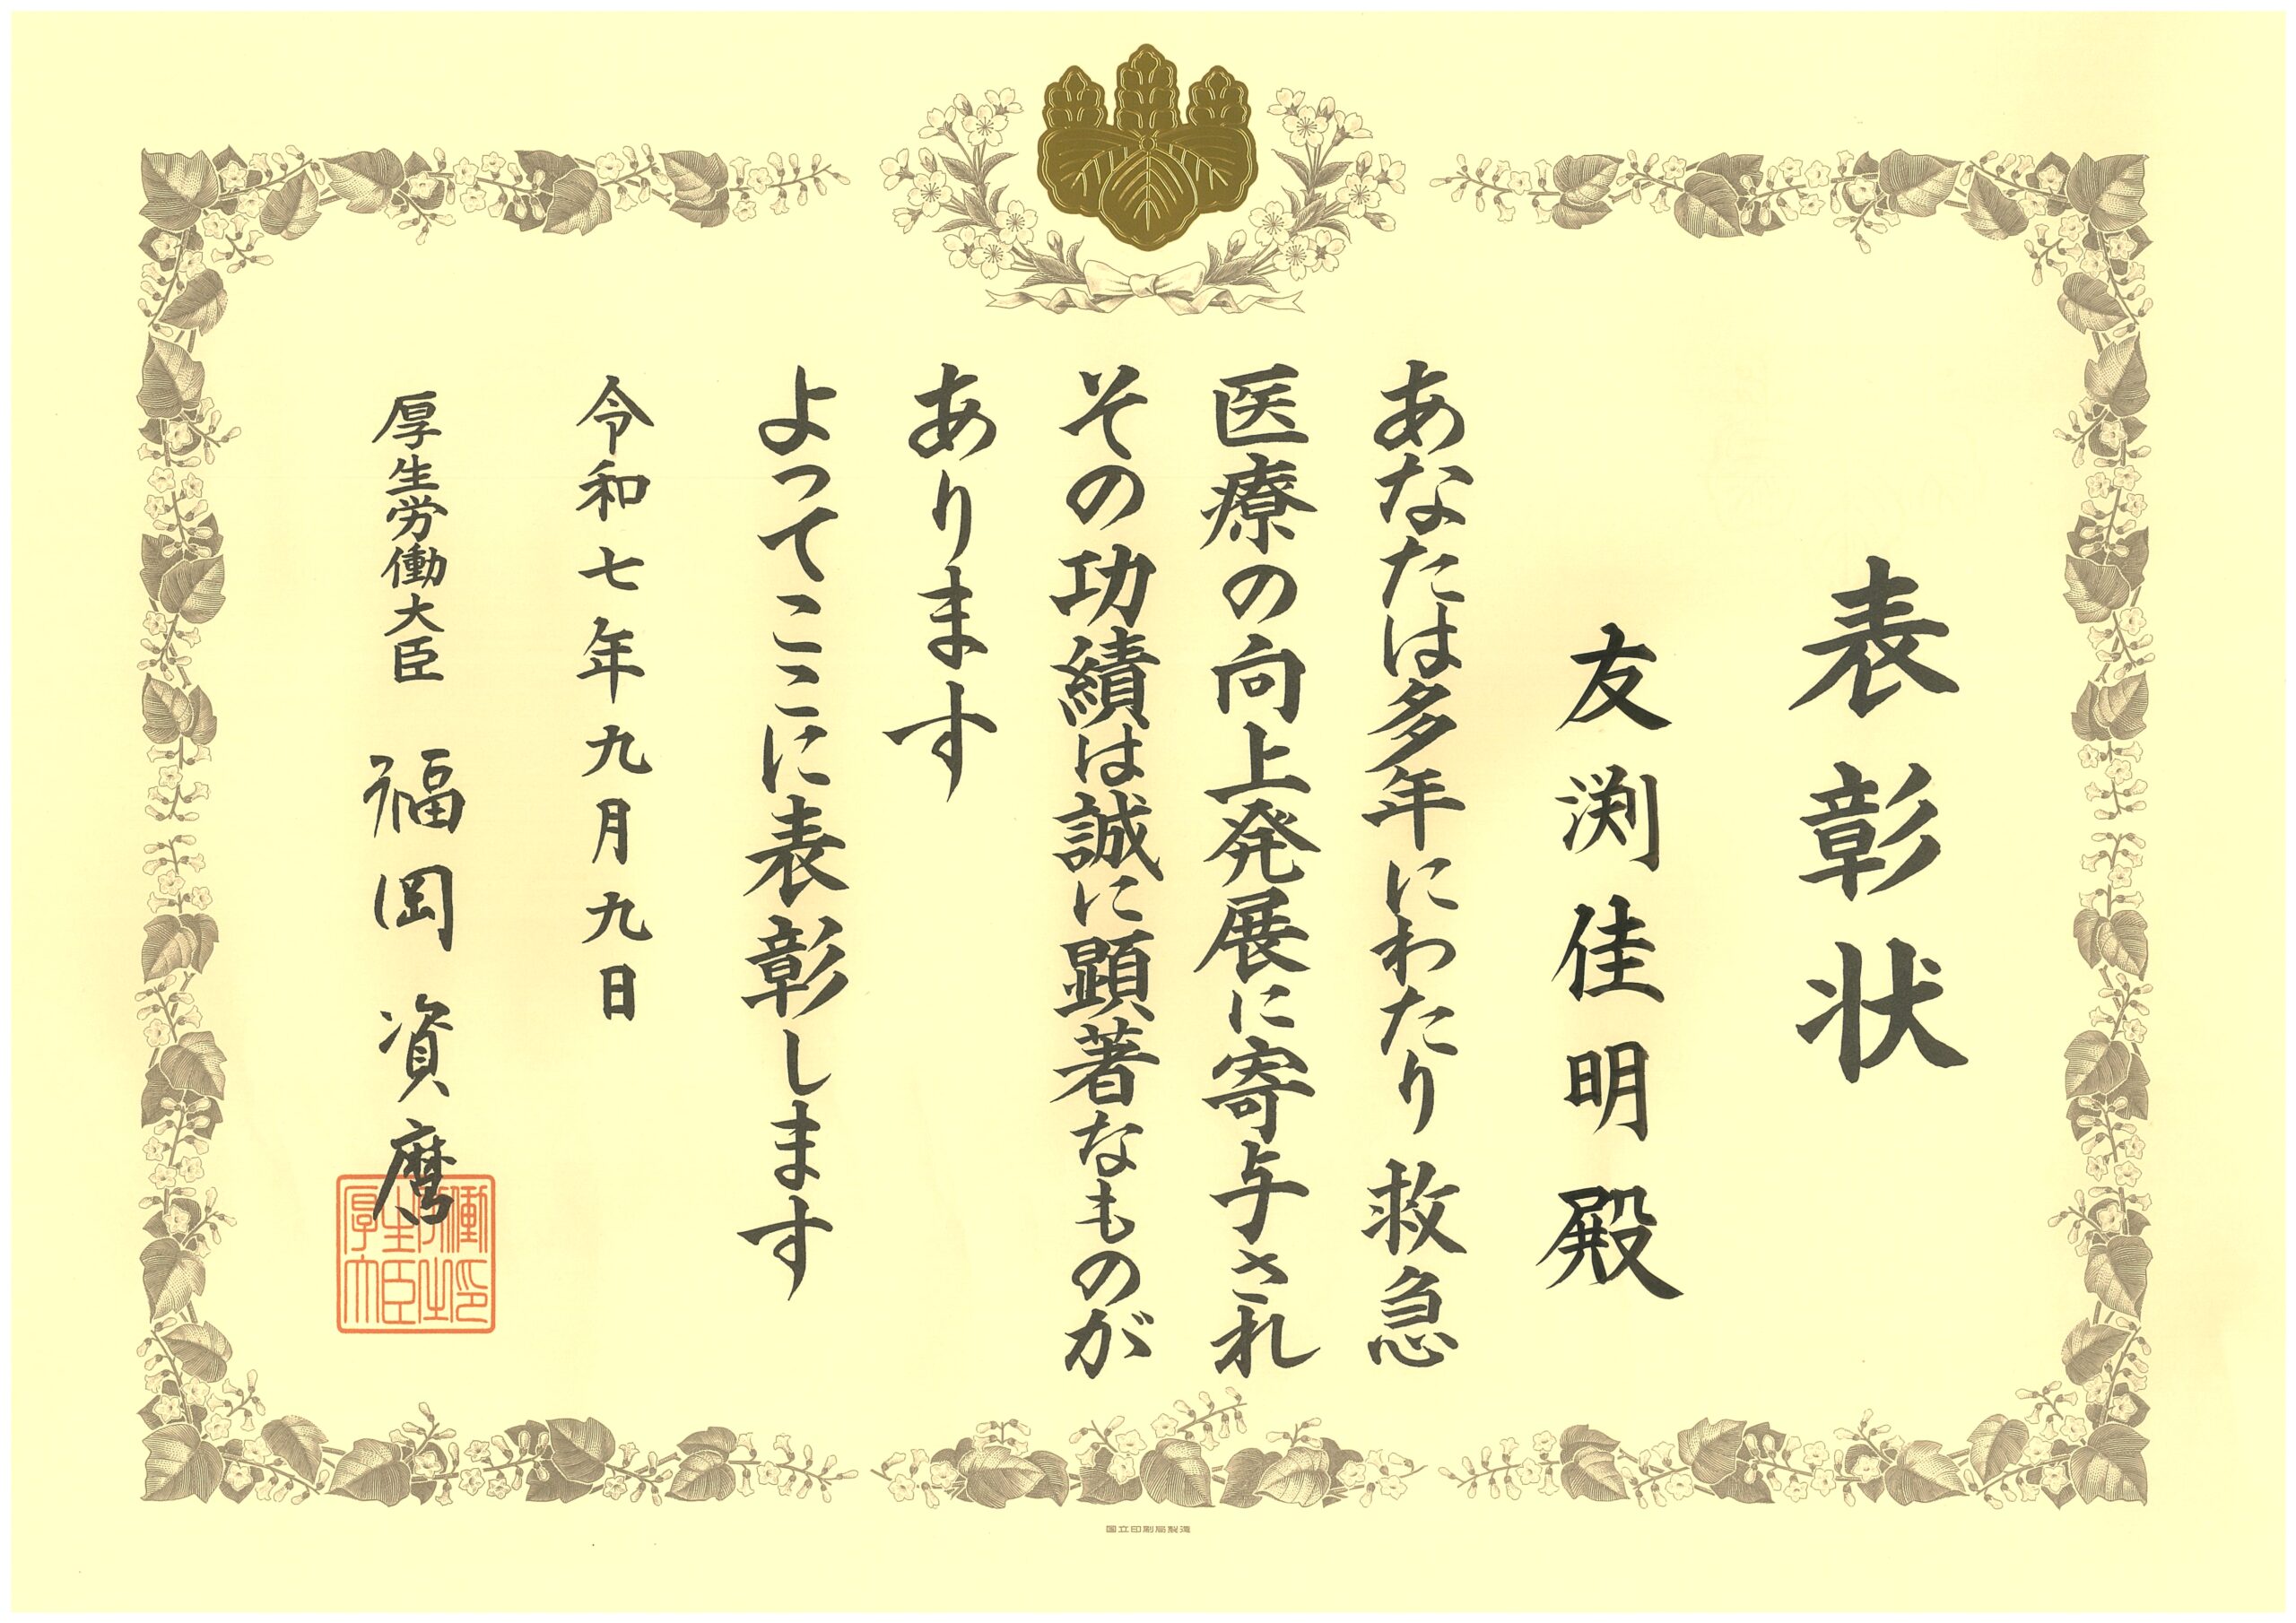 表彰状
友渕佳明殿
あなたは多年にわたり救急
医療の向上発展に寄与され
その功績は誠に顕著なものが
あります
よってここに表彰します
令和七年九月九日
厚生労働大臣 福岡資麿
厚生労働大臣之印
国立印刷局製造